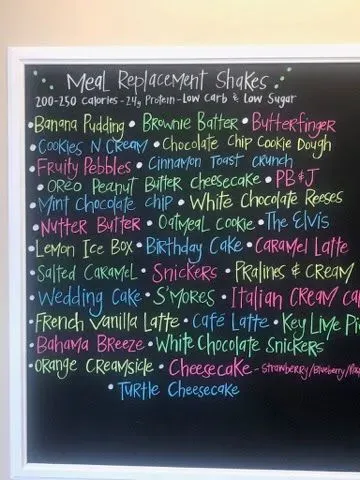 Meal Replacement Shakes
200-250 Calories - 24g Protein - Low Carb & Low Sugar
• Banana Pudding • Brownie Batter • Butterfinger
• Cookies N Cream • Chocolate Chip Cookie Dough
• Fruity Pebbles • Cinnamon Toast Crunch
• Oreo Peanut Butter Cheesecake • PB & J
• Mint Chocolate Chip • White Chocolate Reeses
• Nutter Butter • Oatmeal Cookie • The Elvis
• Lemon Ice Box • Birthday Cake • Caramel Latte
• Salted Caramel • Snickers • Pralines & Cream
• Wedding Cake • S'mores • Italian Cream Ca
• French Vanilla Latte • Café Latte • Key Lime Pi
• Bahama Breeze • White Chocolate Snickers
• Orange Creamsicle • Cheesecake - Strawberry/Blueberry/
• Turtle Cheesecake